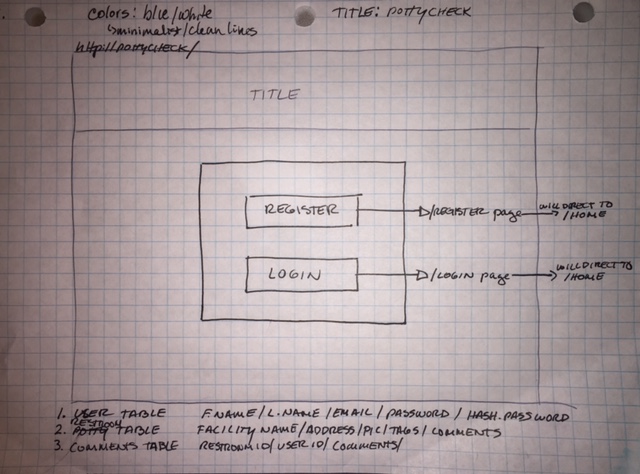 colors: blue/white
TITLE: POTTYCHECK
↳minimalist/clean lines
http://pottycheck/
TITLE
REGISTER
/REGISTER page
WILL DIRECT TO
/HOME
LOGIN
/LOGIN page
WILL DIRECT TO
/HOME
1. USER TABLE FNAME/L.NAME/EMAIL/PASSWORD/HASH.PASSWORD
RESTROOM
2. POTTY TABLE FACILITY NAME/ADDRESS/PIC/TAGS/COMMENTS
3. COMMENTS TABLE RESTROOM ID/USER ID/COMMENTS/